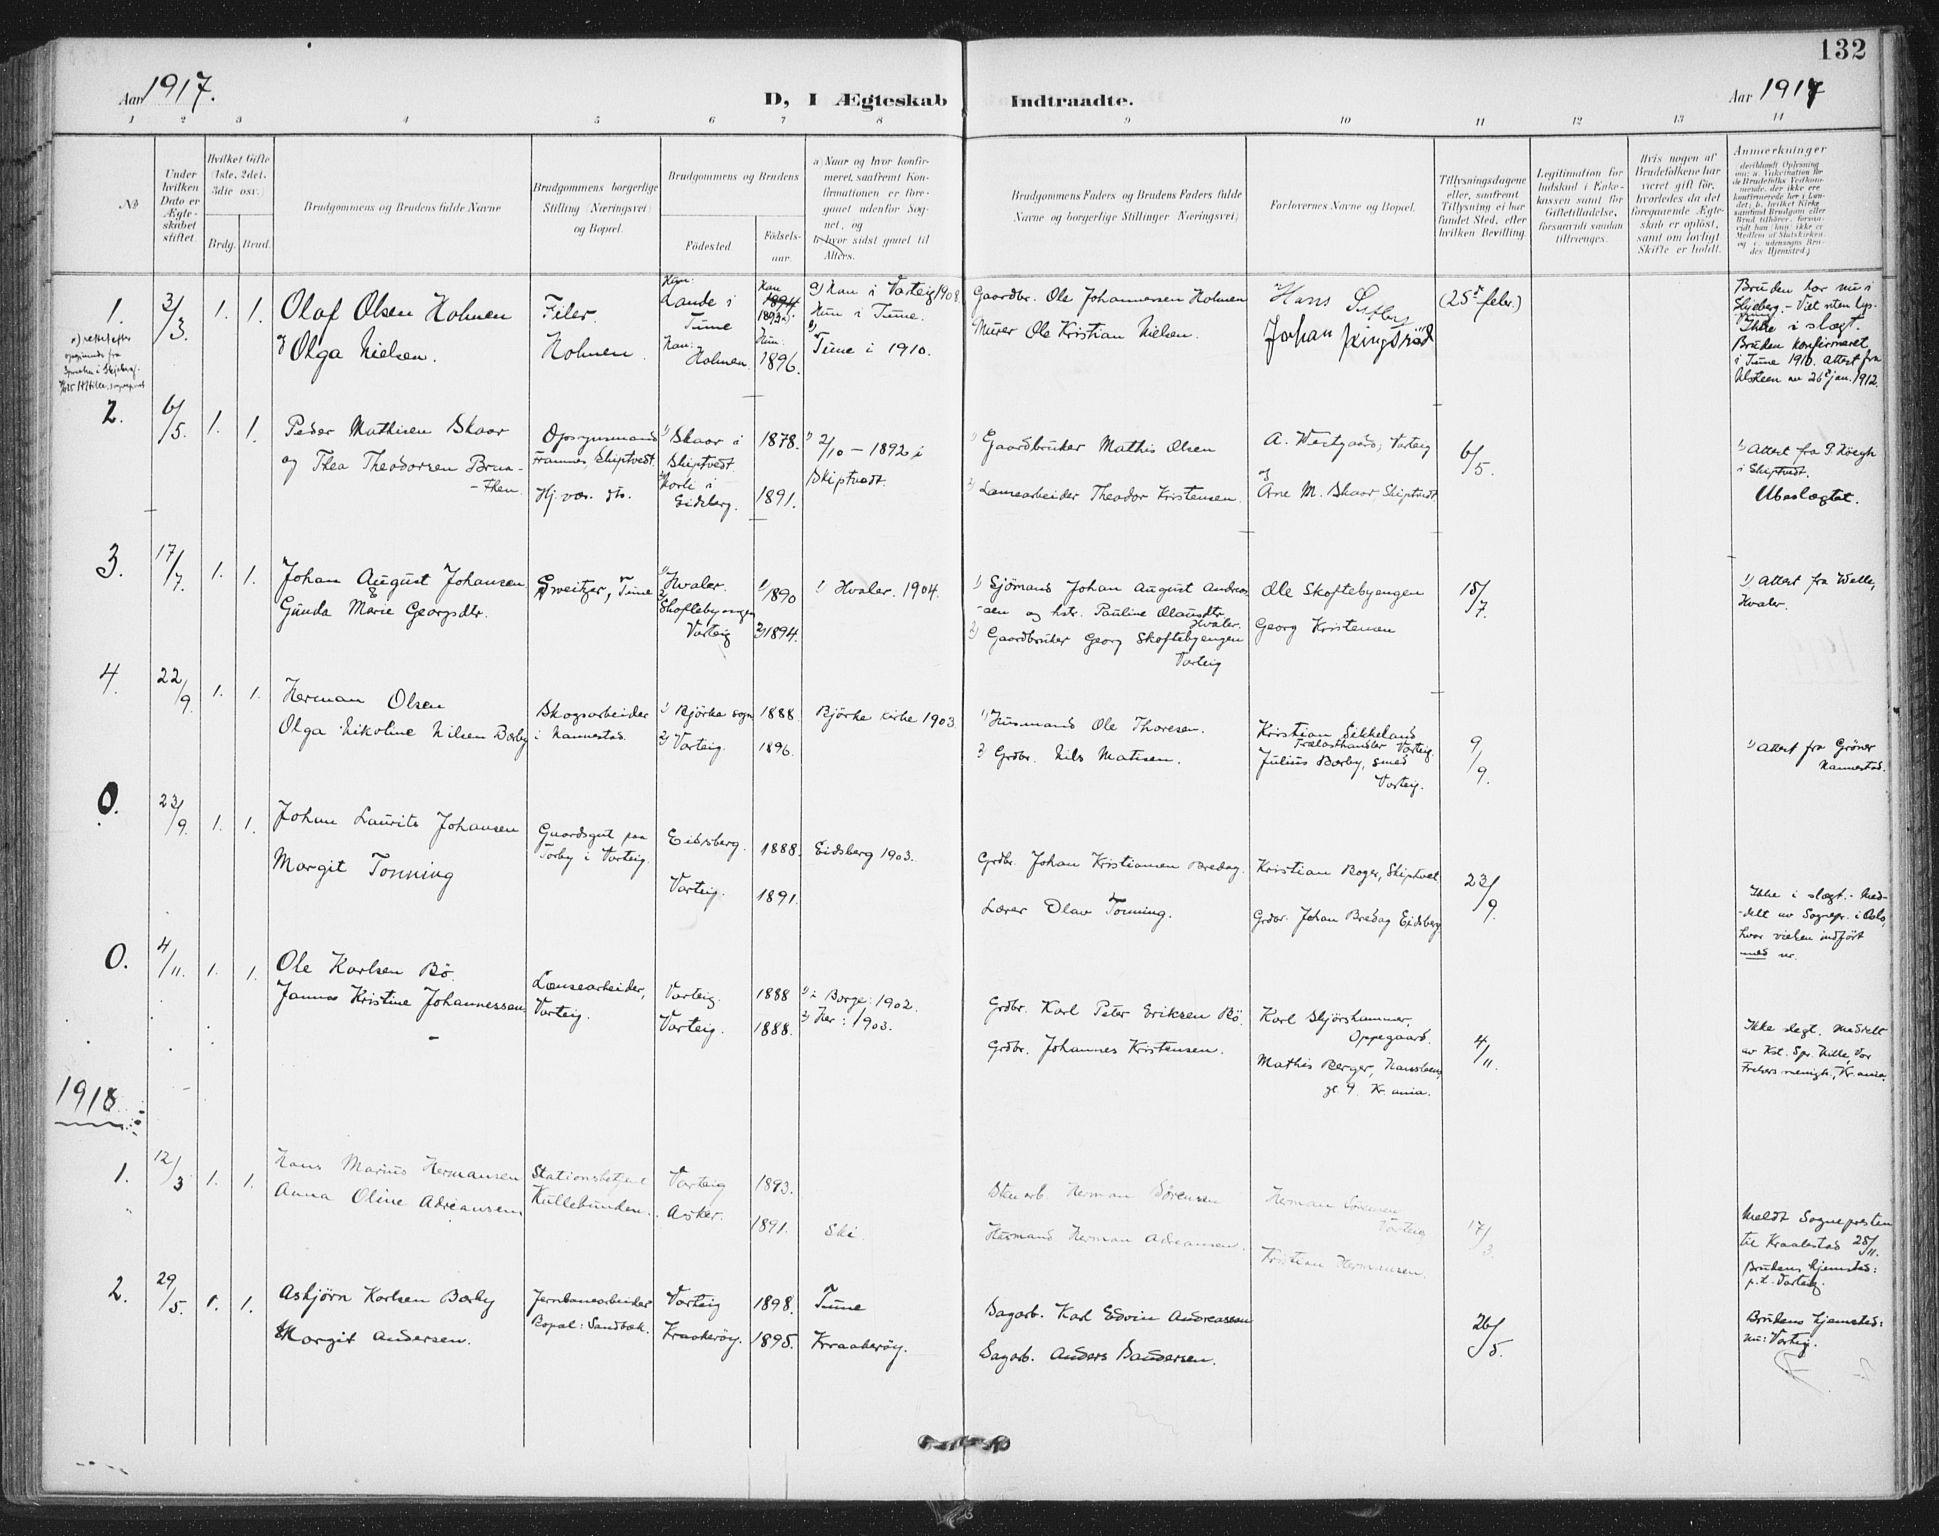 132
Aar 1917.
D, I Ægteskab Indtraadte.
Aar 1917
1 2 3 4 5 6 7 8 9 10 11 12 13 14
№
Under hvilken Dato er Ægteskabet stiftet.
Hvilket Gifte (1ste, 2det, 3die osv.)
Brdg. Brud.
Brudgommens og Brudens fulde Navne
Brudgommens borgerlige Stilling (Næringsvei) og Bopæl.
Brudgommens og Brudens
Fødested
Fødselsaar.
a) Naar og hvor konfirmeret, samt om Konfirmationen er foregaaet udenfor Sognet, og
b) hvor sidst gaaet til Alters.
Brudgommens Faders og Brudens Faders fulde Navne og borgerlige Stillinger (Næringsvei)
Forlovernes Navne og Bopæl.
Tillysningsdagene eller, saafremt Tillysning ei har fundet Sted, efter hvilken Bevilling.
Legitimation for Indskud i Enkekassen samt for Giftetilladelse, forsaavidt saadan tiltrænges.
Hvis nogen af Brudefolkene har været gift før, hvorledes da det foregaaende Ægteskab er opløst, samt om lovligt Skifte er holdt.
Anmærkninger
1. 3/3 1. 1. Olaf Olsen Holmen
Filer. Holmen.
Hun: Lande i Tune
Han: Holmen.
Han 1894 1892
Hun: 1896.
a) Han i Varteig 1908.
Hun i Tune.
Tune i 1910.
Gaardbr. Ole Johannersen Holmen
Hans
(25de febr.)
Bruden bor nu i
Ikke i slægt.
Bruden konfirmeret
i Tune 1910. Attest fra
26 jan. 1912.
Olga Nielsen.
Murer Ole Kristian Nielsen.
Johan
2. 6/5. 1. 1. Peder Mathisen Skaar
og Thea Theodorsen Bru-
Opsynsmand
Framnes Skiptvedt.
1) Skaar i Skiptvedt.
i Eidsberg.
1878.
1891.
1) 2/10 - 1892 i Skiptvedt.
1) Gaardbruker Mathis Olsen
2) Lænsearbeider Theodor Kristensen.
A. Vestgaard, Varteig
og
Arne M. Skaar Skiptvedt
6/5.
1) Attest fra P. Höegh
i Skiptvedt.
Ubeslægtet.
3. 17/7. 1. 1. Johan August Johansen
&
Gunda Marie Georgsdtr.
Sveitzer, Tune
1) Hvaler.
2) Skoftebyengen Varteig
1) 1890
2) 1894.
1) Hvaler. 1904.
1) Sjömand Johan August Andreas-
sen og hstr. Pauline Olausdtr.
Hvaler.
2) Gaardbruker Georg Skoftebyengen
Varteig
Ole Skoftebyengen
Georg Kristensen
15/7.
1) Attest fra Welle,
Hvaler.
4. 22/9. 1. 1. Herman Olsen
Olga Nikoline Nilsen Bærby
Skogsarbeider
i Nannestad.
1) Bjørke sogn
2) Varteig.
1888.
1896.
Bjørke kirke 1903.
1) Husmand Ole Thoresen.
2) Grdbr. Nils Matisen.
Kristian Sikkeland
Trælasthandler Varteig.
Julius Bærby, smed
Varteig.
9/9.
1) Attest fra Gröner
Nannestad.
0. 23/9. 1. 1. Johan Laurits Johansen
Margit Tonning
Gaardsgut paa
Torby i Varteig.
Eidsberg.
Varteig.
1888.
1891.
Eidsberg 1903.
Grdbr. Johan Kristiansen Bredag.
Lærer Olav Tonning.
Kristian Boger, Skiptvet
Grdbr. Johan Bredag Eidsberg
23/9.
Ikke i slægt. - Med-
delt av Sognepr. i Oslo,
hvor vielsen indført
med nr.
0. 4/11. 1. 1. Ole Karlsen Bö.
Jannas Kristine Johannessen.
Lænsearbeider,
Varteig.
Varteig.
Varteig.
1888
1888.
1) i Borge: 1902.
2) Her: 1903.
Grdbr. Karl Peter Eriksen Bö.
Grdbr. Johannes Kristensen.
Karl Skjörshammer,
Oppegaard.
Mathis Berger,
9 Kr.ania.
4/11.
Ikke slegt. Meddelt
av Kst. Spr. Hille, Vor
Frelsers menigh., Kr.ania.
1918
1. 12/3 1. 1. Hans Marius Hermansen
Anna Oline Adreansen
Stationsbetjent
Kullebunden.
Varteig
Asker.
1893.
1891.
Ski.
Herman Sörensen
Husmand Herman Adreansen.
Herman Sörensen
Varteig
Kristian Hermansen.
17/3.
Meldt Sognepresten
til Kraakstad 25/11.
Brudens hjemsted:
p.t. Varteig.
2. 29/5. 1. 1. Asbjørn Karlsen Bærby
Margit Andersen.
Jernbanearbeider
Bopæl: Sandbæk.
Varteig
Kraakerøy.
1898.
1895.
Tune
Kraakerøy.
Dagarb. Karl Edvin Andreassen
Dagarb. Anders
26/5.
Brudens hjemsted:
nu: Varteig.